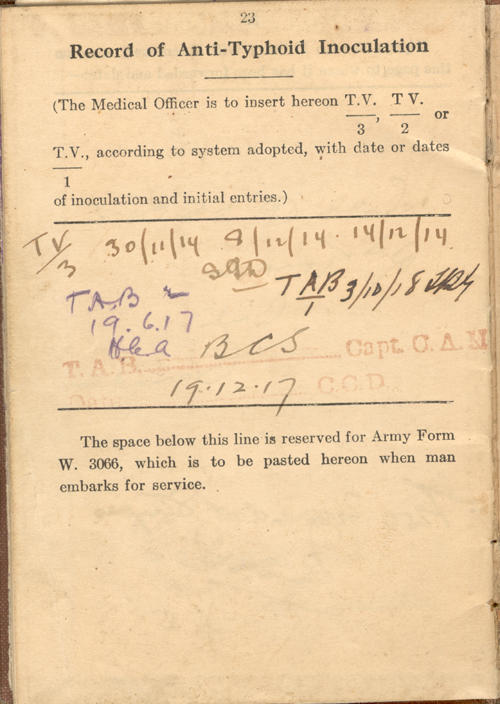 23
Record of Anti-Typhoid Inoculation
(The Medical Officer is to insert hereon T.V./3, T V./2 or
T.V./1, according to system adopted, with date or dates
of inoculation and initial entries.)
TV/3 30/11/14 9/12/14. 14/12/14
TAB/1 3/10/18
T.A.B
19.6.17
BCS
T. A. B. Capt. C. A. M
19.12.17 C.C.D.
Date
The space below this line is reserved for Army Form
W. 3066, which is to be pasted hereon when man
embarks for service.